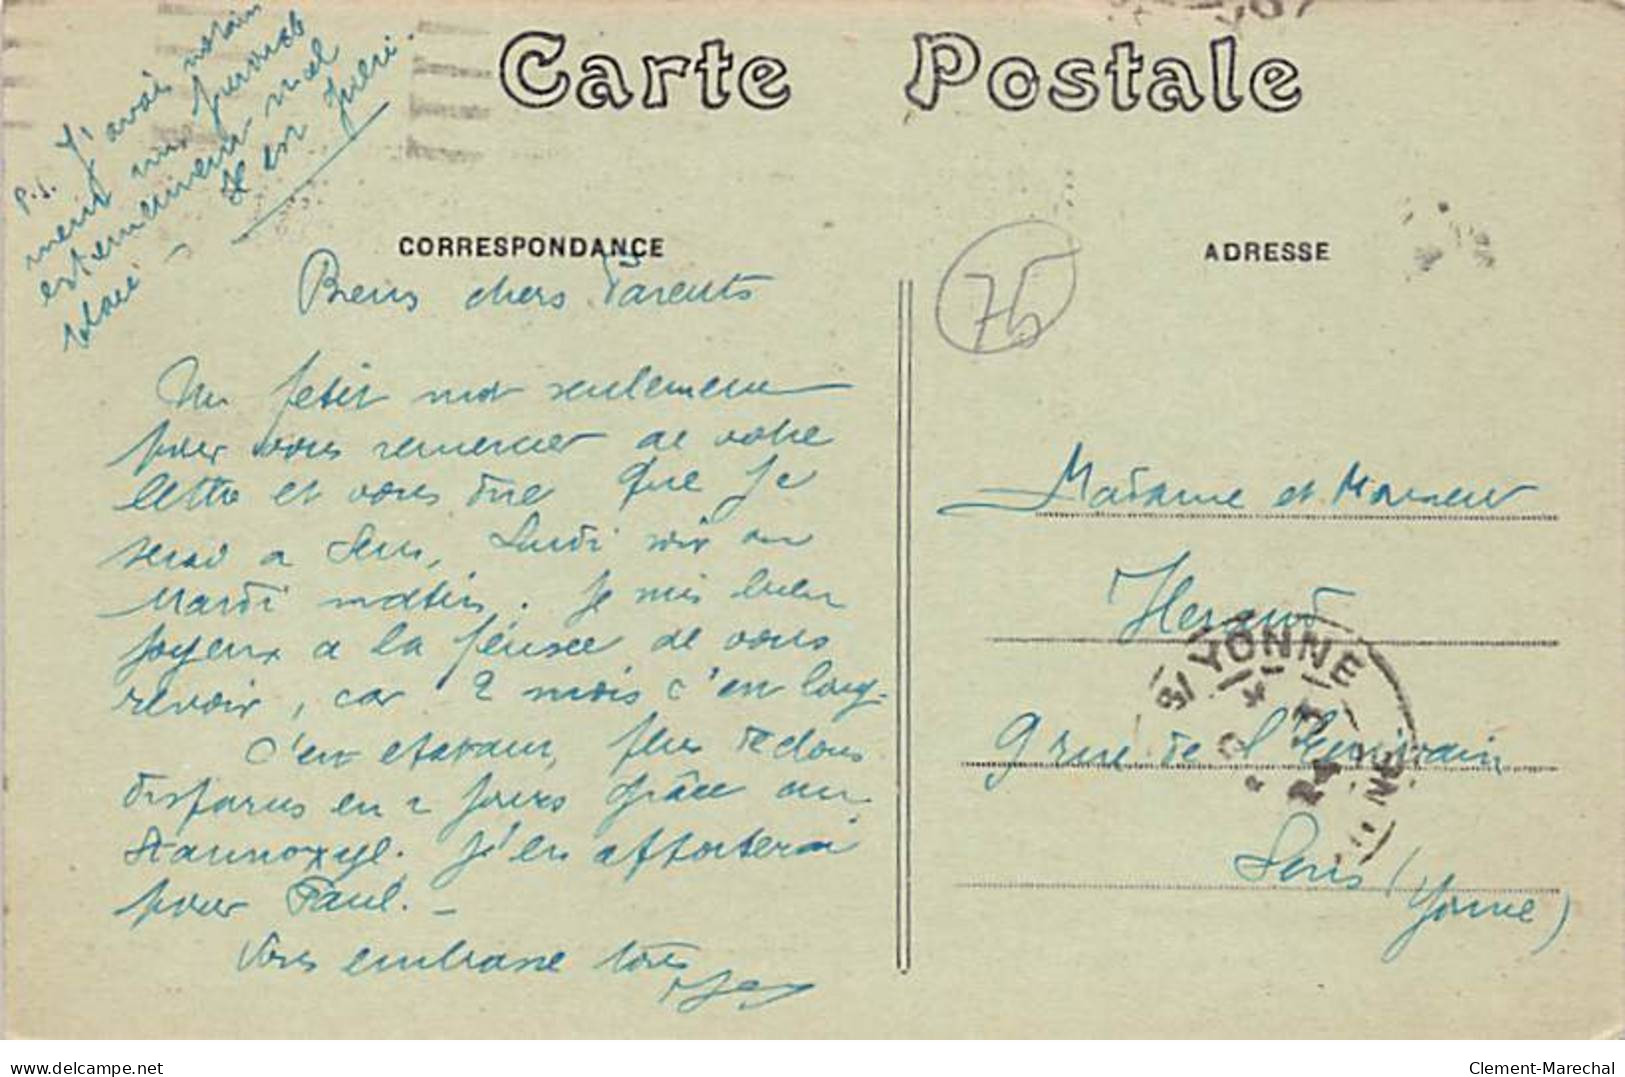 Carte Postale
P.S. J'avais
un furoncle
mal
placé -
CORRESPONDANCE
ADRESSE
75
Biens chers Parents
Un petit mot seulement
pour vous remercier de votre
lettre et vous dire que je
serai a Sens, Lundi soir ou
Mardi matin. Je suis bien
joyeux a la pensée de vous
revoir, car 2 mois c'en long.
C'en epatant, plus de clous
disparus en 2 jours Grâce au
Stannoxyl. J'en apporterai
pour Paul. -
Vous embrasse tous
Madame et Monsieur
Heraud
9 rue de l'
Sens (Yonne)
YONNE
delcampe.net
Clement-Marechal